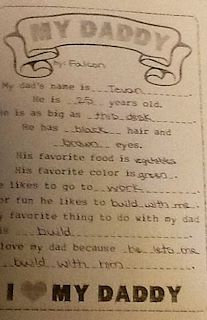 MY DADDY
by: Falcon
My dad's name is Tevan.
He is 25 years old.
He is as big as this desk.
He has black hair and
brown eyes.
His favorite food is vegetables
His favorite color is green.
He likes to go to work.
For fun he likes to build with me.
My favorite thing to do with my dad
is build.
I love my dad because he lets me
build with him.
I MY DADDY